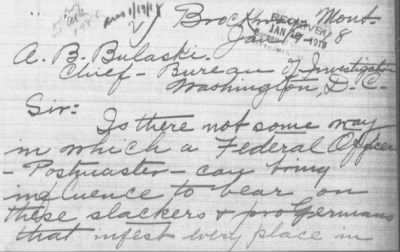 Mont.
RECEIVED
JAN 18 1918
A. B. Bulaski.
Chief - Bureau of Investigation
Washington, D. C.
Sir:
Is there not some way
in which a Federal Officer
- Postmaster - can bring
influence to bear on
these slackers & pro Germans
that infest every place in